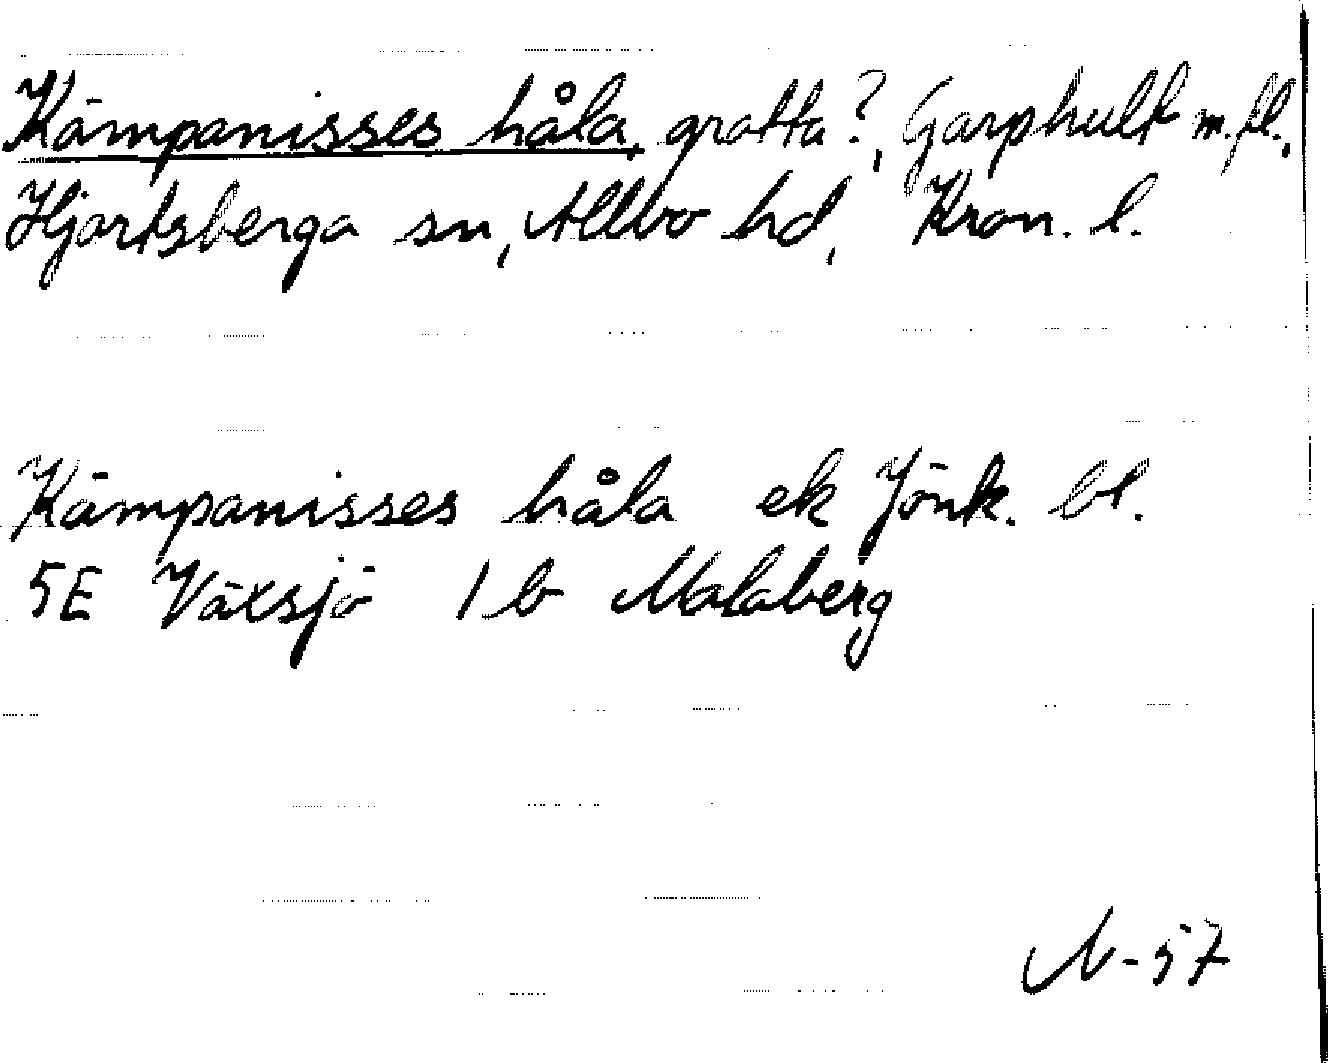 Kämpanisses håla, grotta?, Garphult m.fl.,
Hjortsberga sn, Allbo hd, Kron. l.
Kämpanisses håla ek Jönk. bl.
5E Växsjö 1 b Malaberg
N-57